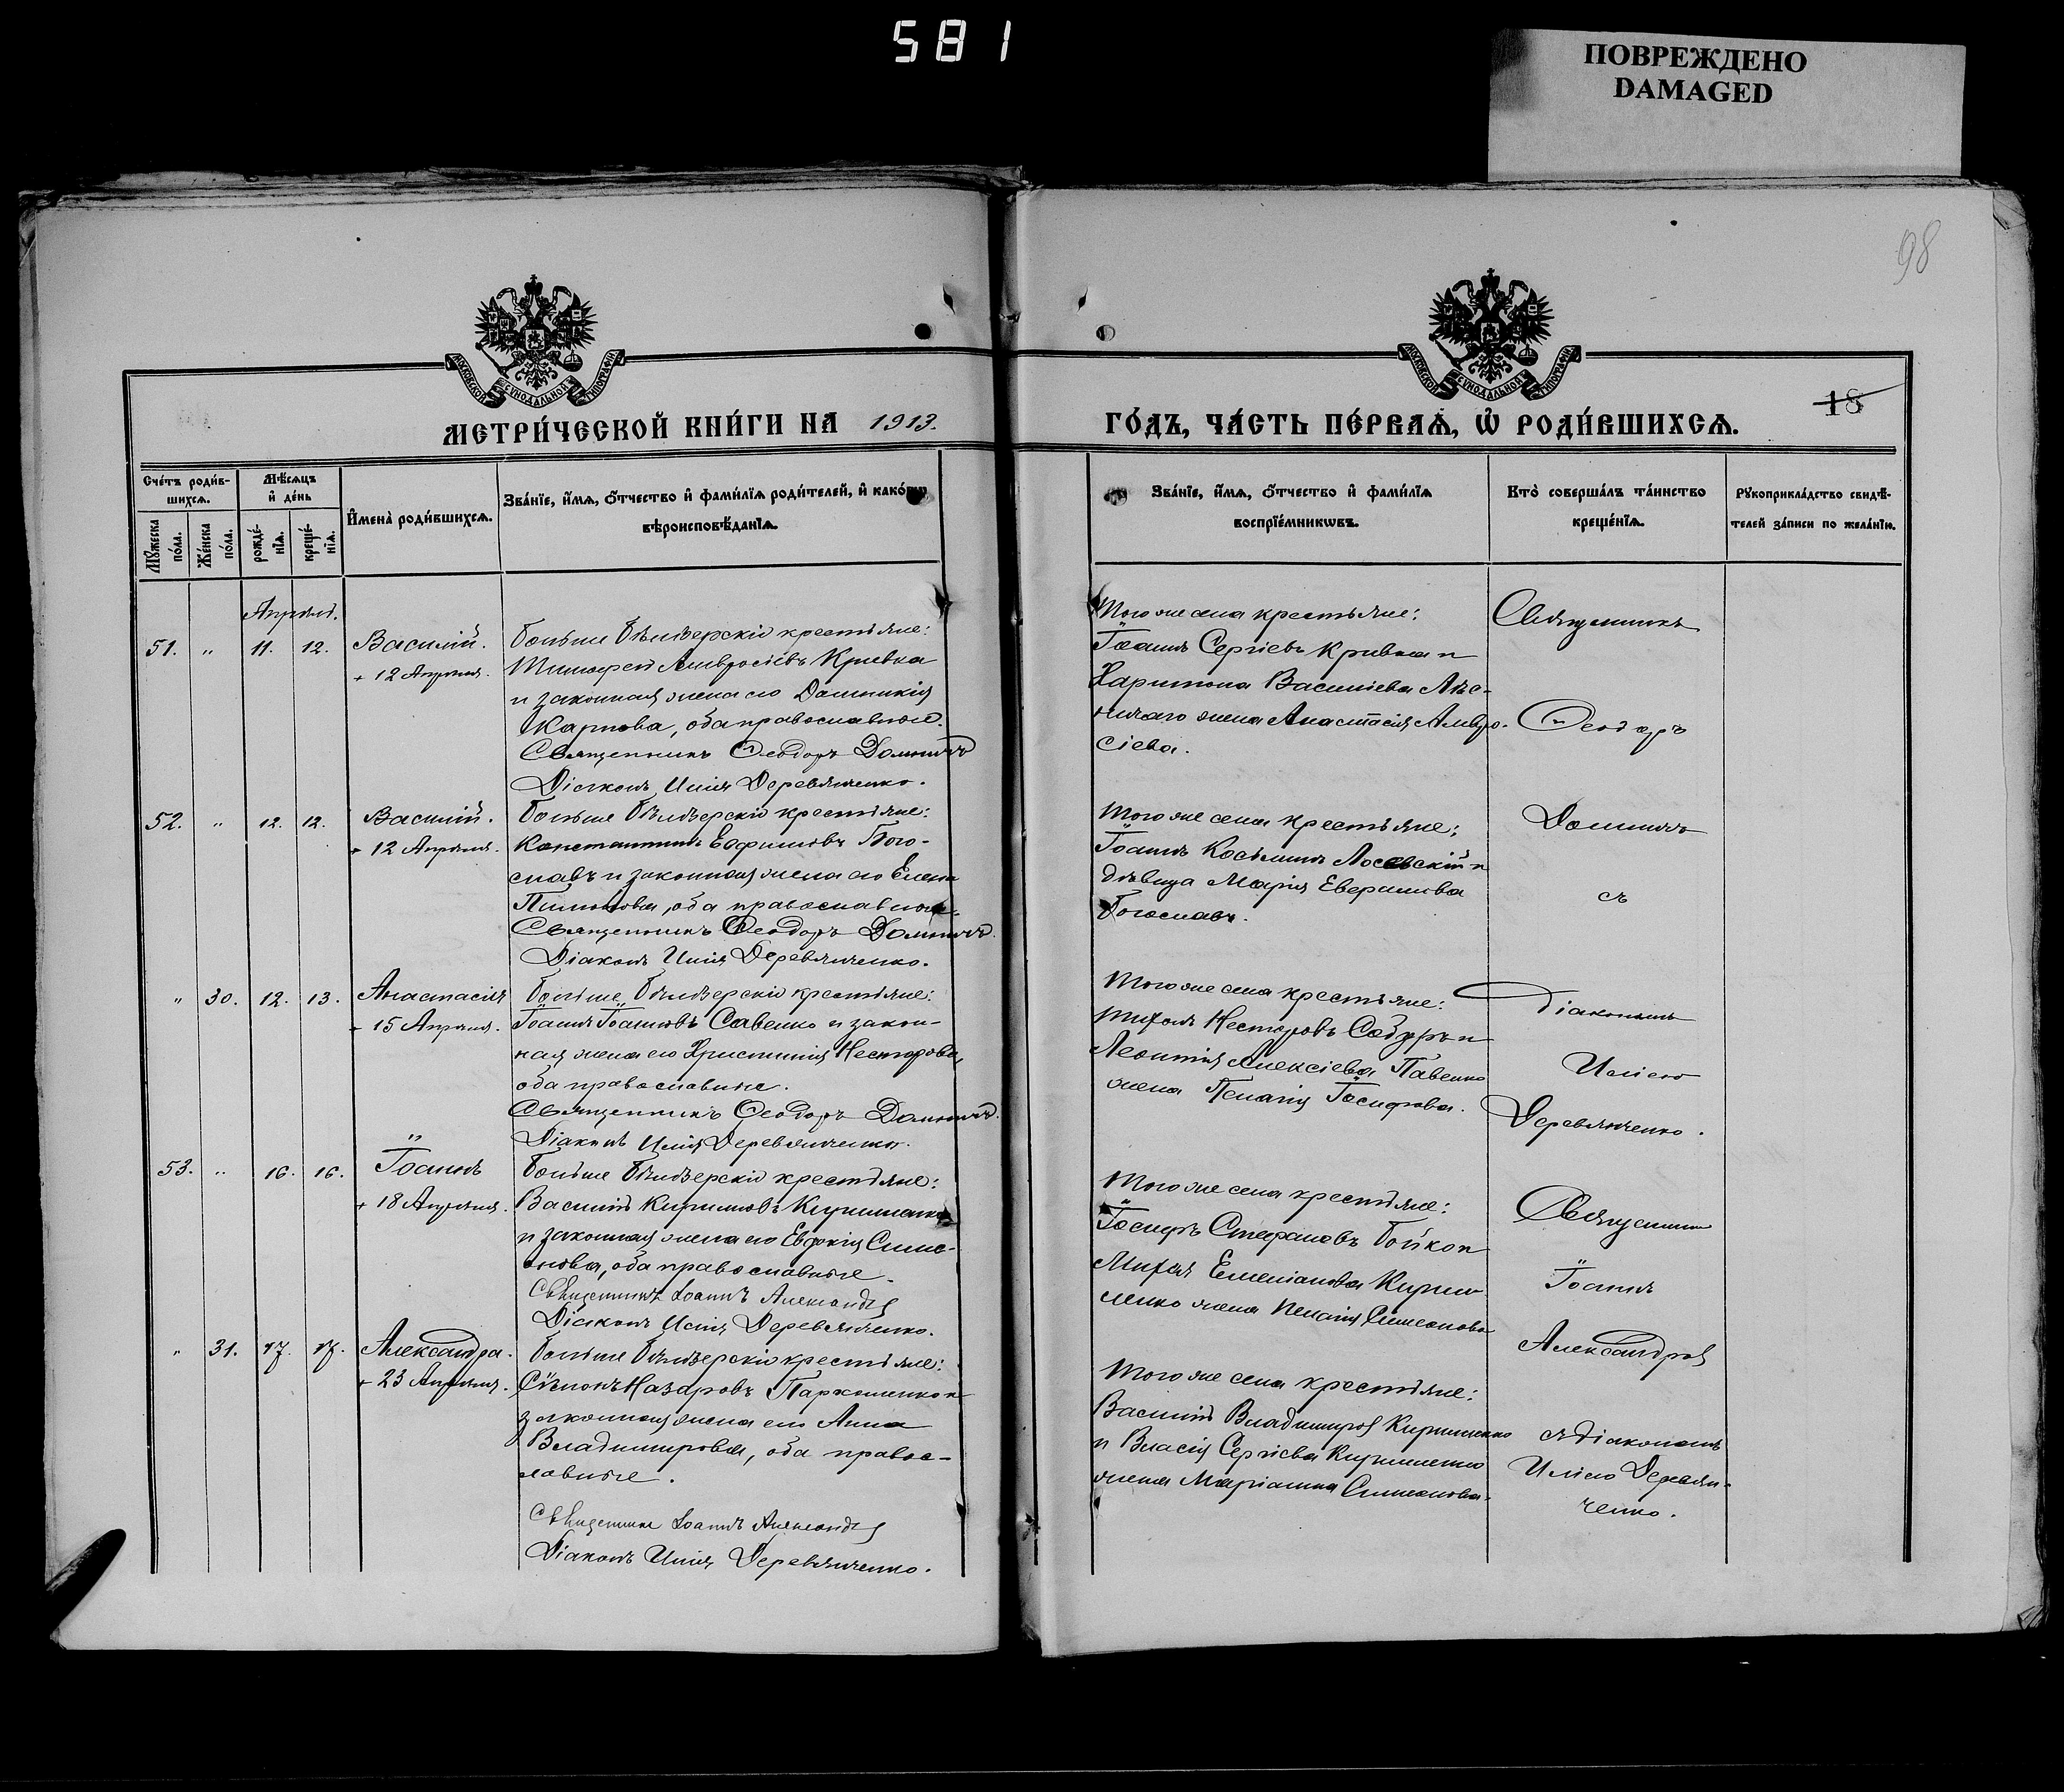 581
ПОВРЕЖДЕНО
DAMAGED
98
МОСКОВСКОЙ СѴНОДАЛЬНОЙ ТИПОГРАФІИ
МОСКОВСКОЙ СѴНОДАЛЬНОЙ ТИПОГРАФІИ
18
МЕТРИ́ЧЕСКОЙ КНИ́ГИ НА 1913.
ГО́ДЪ, ЧА́СТЬ ПЕ́РВАѦ, Ѡ҆ РОДИ́ВШИХСѦ.
Сче́тъ роди́в-
шихсѧ.
Мѣ́сѧцъ
и҆ де́нь
Мꙋ́жеска
по́ла.
Же́нска
по́ла.
рожде́-
нїѧ.
креще́-
нїѧ.
И҆мена̀ роди́вшихсѧ.
Зва́нїе, и҆́мѧ, ѻ҆́тчество и҆ фами́лїѧ роди́телей, и҆ како́гѡ
вѣроисповѣ́данїѧ.
Зва́нїе, и҆́мѧ, ѻ҆́тчество и҆ фами́лїѧ
воспрїе́мникѡвъ.
Кто̀ соверша́лъ та́инство
креще́нїѧ.
Рꙋкоприкла́дство свидѣ́-
телей за́писи по жела́нїю.
Апрѣль.
51. " 11. 12. Василій.
+ 12 Апрѣля.
Больше Бѣлозерскіе крестьяне:
Тимофей Амвросіевъ Кривка
и законная жена его Домникія
Карпова, оба православные.
Священникъ Ѳеодоръ
Діаконъ Илія Деревянченко.
Того же села крестьяне:
Іоаннъ Сергіевъ Кривка и
Харитона Василіева
жена Анастасія Амвро-
сіева.
Священникъ
Ѳеодоръ
52. " 12. 12. Василій.
+ 12 Апрѣля.
Больше Бѣлозерскіе крестьяне:
Константинъ Евфимовъ Бого-
славъ и законная жена его Елена
оба православные.
Священникъ Ѳеодоръ
Діаконъ Илія Деревянченко.
Того же села крестьяне:
Іоаннъ Косьминъ Лосевскій и
дѣвица Марія
Богославъ.
съ
" 30. 12. 13. Анастасія
+ 15 Апрѣля.
Больше Бѣлозерскіе крестьяне:
Іоаннъ Іоанновъ Савенко и закон-
ная жена его Христинія Несторова,
оба православные.
Священникъ Ѳеодоръ
Діаконъ Илія Деревянченко.
Того же села крестьяне:
Тихонъ Несторовъ и
Леонтія Алексіева Павенко
жена Пелагія Іосифова.
Діакономъ
Иліею
Деревянченко.
53. " 16. 16. Іоаннъ
+ 18 Апрѣля.
Больше Бѣлозерскіе крестьяне:
Василій Кирилловъ Кириленко
и законная жена его Евфокія Симе-
онова, оба православные.
Священникъ Іоаннъ Александровъ
Діаконъ Илія Деревянченко.
Того же села крестьяне:
Іосифъ Стефановъ Бойко и
Емеліанова Кирил-
ленко жена Пелагія Симеонова
Священникъ
Іоаннъ
Александровъ
" 31. 17. 17. Александра.
+ 23 Апрѣля.
Больше Бѣлозерскіе крестьяне:
Сѵмонъ Назаровъ Пархоменко и
законная жена его Анна
Владимирова, оба правос-
лавные.
Священникъ Іоаннъ Александровъ
Діаконъ Илія Деревянченко.
Того же села крестьяне:
Василій Владимировъ Кириленко
и Власія Сергіева Кириленко
жена Маріамна Симеонова.
съ діакономъ
Иліею Деревян-
ченко.